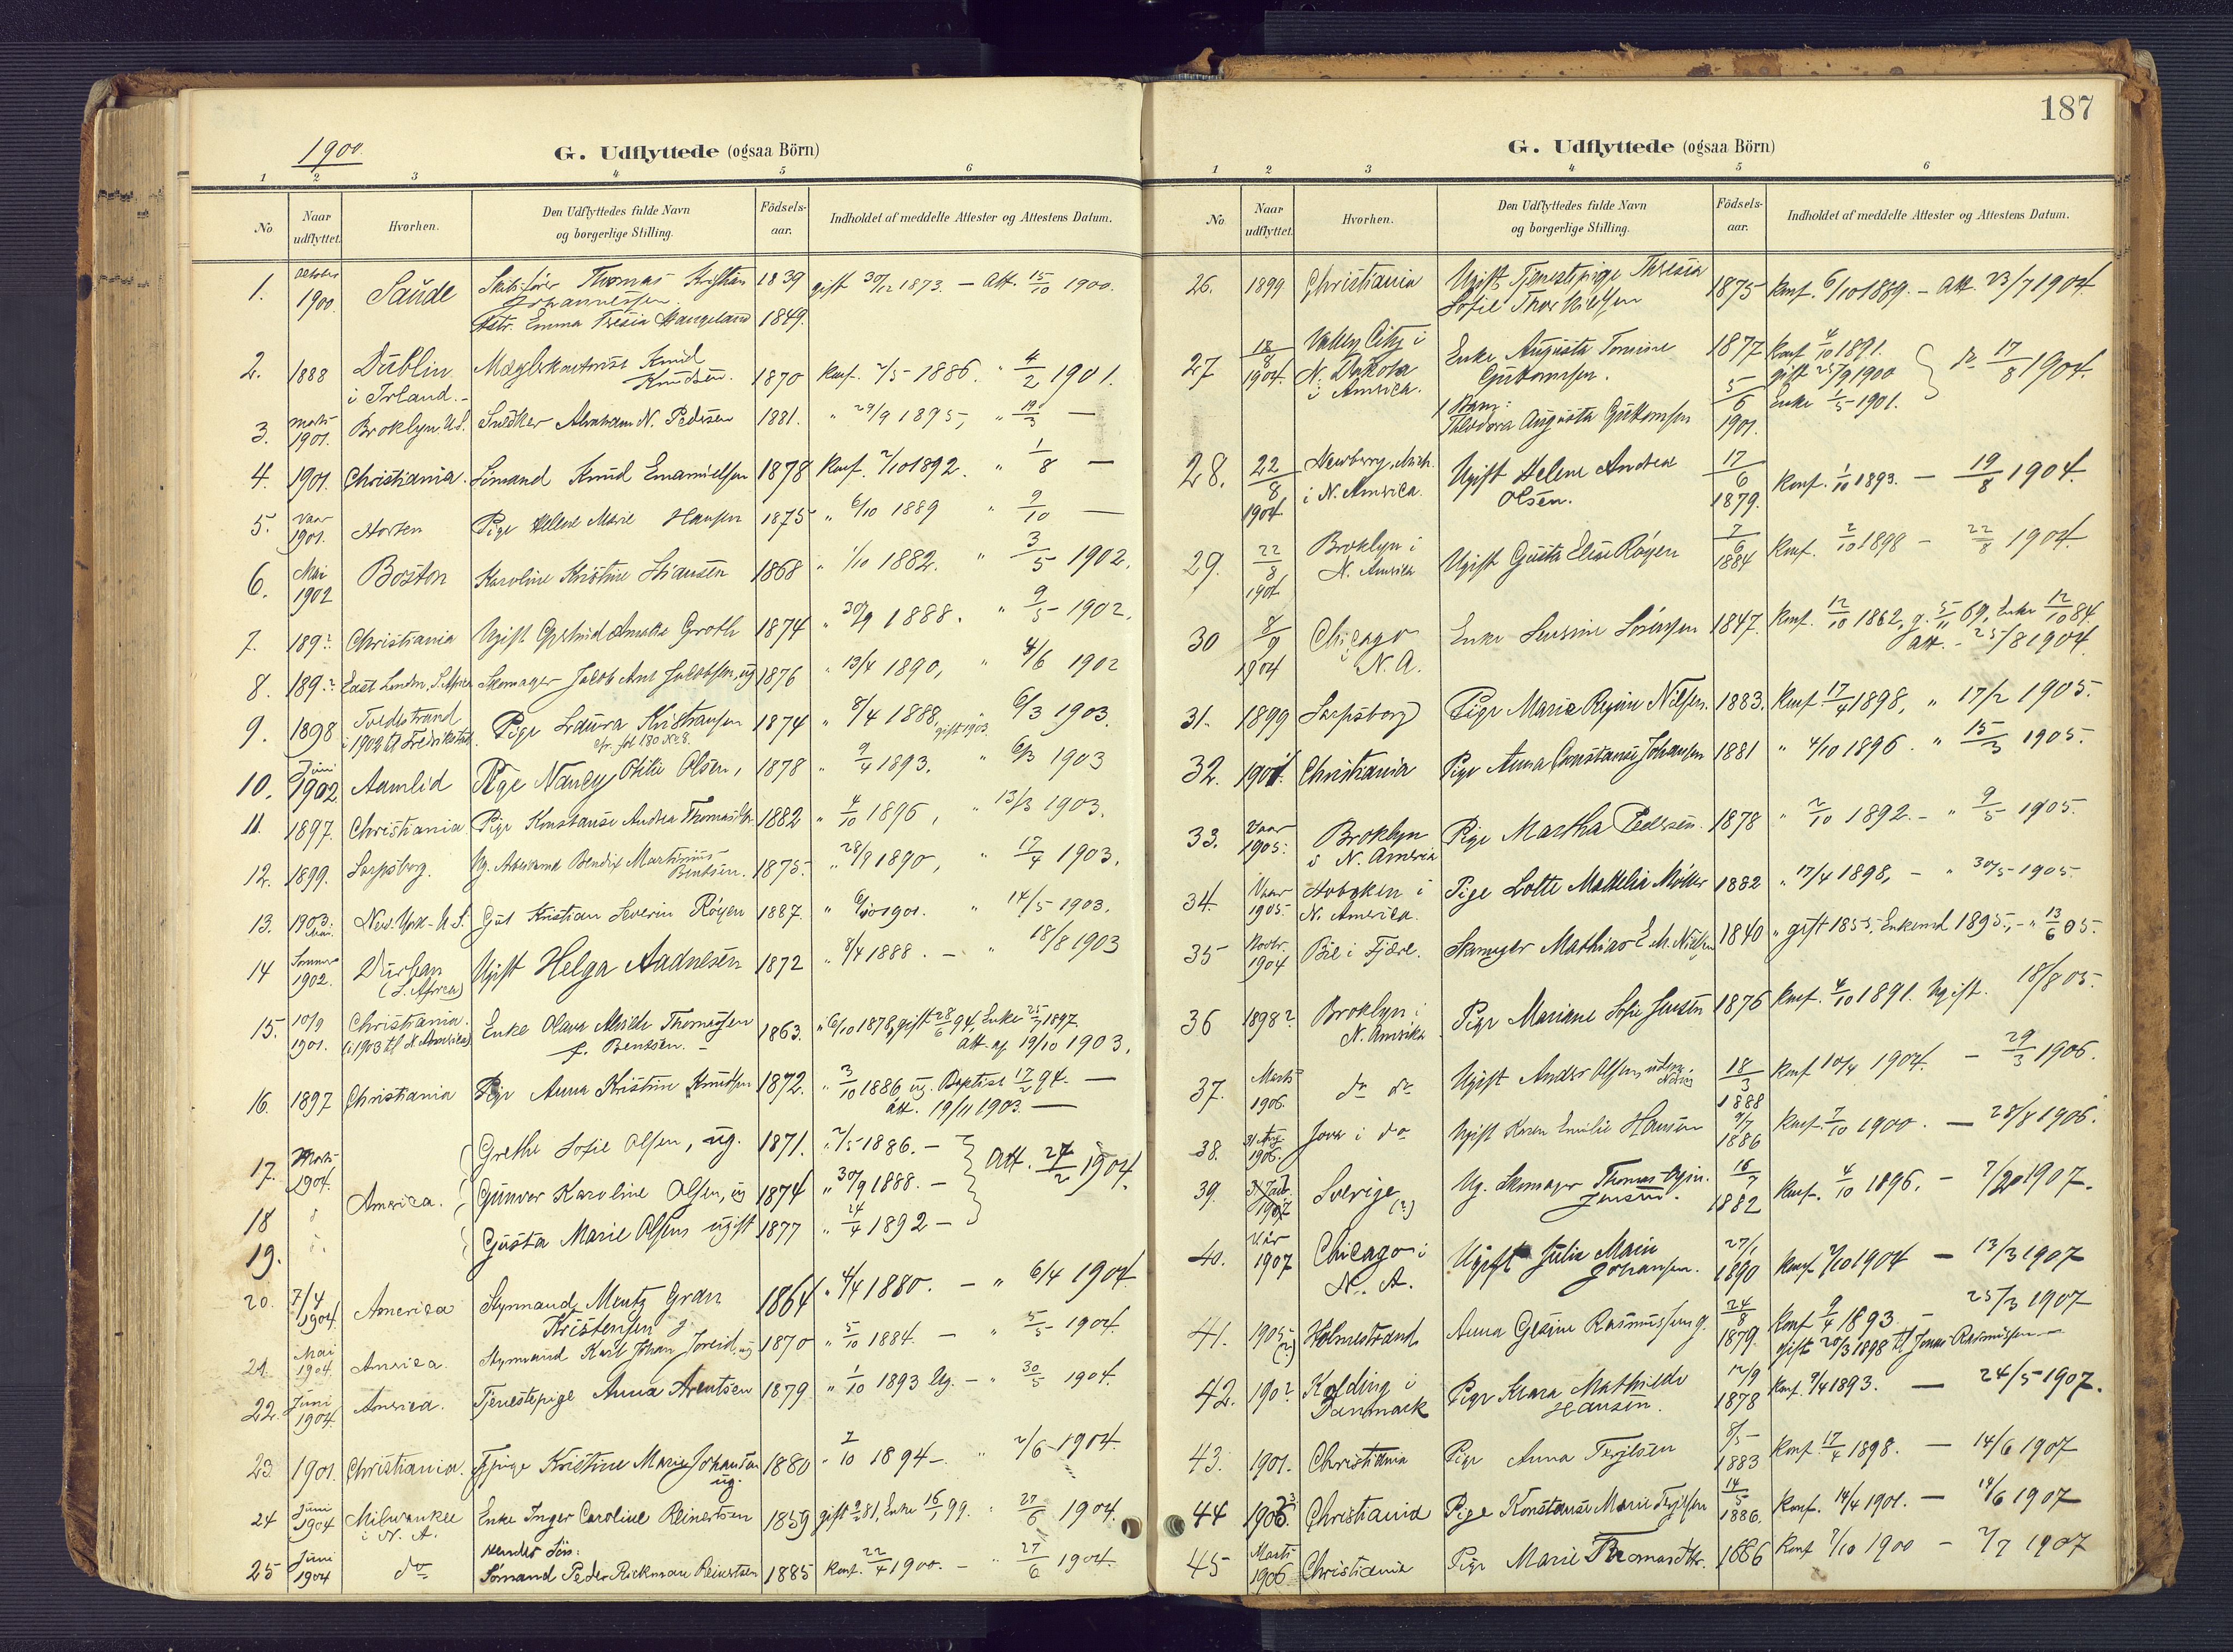 1900.
G. Udflyttede (ogsaa Börn)
1 2 3 4 5 6
No Naar udflyttet. Hvorhen. Den Udflyttedes fulde Navn og borgerlige Stilling. Födsels-aar. Indholdet af meddelte Attester og Attestens Datum.
1. October 1900. Saude Thomas Kristian 1839 gift 30/12 1873. — Att. 15/10 1900.
Johannessen.
Emma Tresia Haugeland 1849.
2. 1888 Dublin i Irland. Knud Knudsen. 1870 Konf. 2/5 1886. " 4/2 1901.
3. Marts 1901. Broklyn U.S. Snedker Abraham N. Pedersen 1881. " 29/9 1895, " 19/3 —
4. 1901. Christiania. Sömand Knud Emanuelsen 1878 Konf. 2/10 1892. " 1/8 —
5. Vaar 1901. Horten Pige Helene Marie Hansen 1875 " 6/10 1889 " 9/10 —
6. Mai 1902 Boston Karoline Kristine 1868 " 1/10 1882. " 3/5 1902.
7. 189? Christiania Ugift Gjertrud Amalie Groth 1874 " 30/9 1888. " 9/5 1902.
8. 189? East London, S. Africa Skomager Jacob Ant. Jacobsen, ug 1876 " 13/4 1890, " 4/6 1902
9. 1898 Tvedestrand i 1902 til Fredrikstad. Pige Laura Kristiansen 1874 " 8/4 1888, gift 1903. " 6/3 1903.
cfr. fol 180 No 8.
10. Juni 1902 Aamlid Pige Nancy Otilie Olsen, 1878 " 9/4 1893. " 6/3 1903
11. 1897. Christiania Pige Konstanse Andrea Thomasdtr. 1882 " 4/10 1896, " 13/3 1903.
12. 1899. Sarpsborg. Ug. Bendix Martinius Bentsen. 1875. " 28/9 1890, " 17/4 1903.
13. 1903. Mai. New-York-U.S. Gut Kristian Severin Röyen 1887. " 6/10 1901. " 14/5 1903.
14 Sommer 1902. Durban (S. Africa) Ugift Helga Aadnesen 1872 " 8/4 1888. — " 18/8 1903
15. 10/9 1901. Christiania. (i 1903 til N. Amerika) Enke Olava Alvilde Thomassen f. Bentsen. — 1863. " 6/10 1878, gift 28/6 94, Enke 25/7 1897.
Att. af 19/10 1903.
16. 1897 Christiania Pige Anna Kristine Knudsen 1872. " 3/10 1886 ug. Baptist 17/2 94. —
Att. 19/11 1903. —
17. Marts 1904. America. Grethe Sofie Olsen, ug. 1871. " 2/5 1886. — Att. 24/2 1904.
18 " Gunvor Karoline Olsen, ug 1874 " 30/9 1888. —
19. " Gusta Marie Olsen ugift 1877 " 24/4 1892 —
20. 7/4 1904. America Styrmand Mentz Gran Kristensen 1864 " 4/4 1880. — " 6/4 1904
21. Mai 1904. America. Styrmand Karl Johan ug 1870 " 5/10 1884. — " 5/5 1904.
22. Juni 1904. America. Tjenestepige Anna Arentsen 1879 " 1/10 1893 Ug. — " 30/5 1904.
23. 1901. Christiania. Tjpige Kristine Marie Johansen ug. 1880 " 7/10 1894 — " 2/6 1904.
24 Juni 1904 Milwaukee i N. A. Enke Inger Caroline Reinertsen 1859 gift 9/2 81, Enke 16/1 99. " 27/6 1904.
Hendes Sön:
25 Juni 1904 do Sömand Peder Rickman Reinertsen 1885 Konf. 22/4 1900. — " 27/6 1904.
187
G. Udflyttede (ogsaa Börn)
1 2 3 4 5 6
No. Naar udflyttet. Hvorhen. Den Udflyttedes fulde Navn og borgerlige Stilling. Födsels-aar. Indholdet af meddelte Attester og Attestens Datum.
26. 1899 Christiania Ugift Tjenestepige Theresia Sofie Thor Nielsen 1875 Konf. 6/10 1889. — Att. 23/7 1904.
27 18/8 1904. Valley City i N. Dakota i America. Enke Augusta Tomine Guttormsen. 1877 Konf 4/10 1891. gift 25/9 1900 Enke 1/5 1901. do 17/8 1904.
1 Barn:
Theodora Augusta Guttormsen 5/6 1901.
28. 22/8 1904 Newberry, Mich. i N. America. Ugift Helene Andrea Olsen. 17/6 1879. Konf. 1/10 1893. — 19/8 1904.
29. 22/8 1904 Broklyn i N. America Ugift Gusta Elise Röyen 7/6 1884 Konf. 2/10 1898 — 22/8 1904.
30 8/9 1904 Chicago i N. A. Enke Sörensen 1847. Konf. 12/10 1862, g. 5/11 69, Enke 12/10 84.
Att. — 25/8 1904.
31. 1899 Sarpsborg Pige Marie Regine Nilsen. 1883. Konf. 17/4 1898, " 17/2 1905.
32. 1901. Christiania Pige Anna Constanse Johansen 1881 " 4/10 1896. " 15/3 1905.
33. Vaar 1905. Broklyn i N. America Pige Martha Pedersen. 1878 " 2/10 1892. — " 9/5 1905.
34. Vaar 1905. Hoboken i N. America. Pige Lotte Mathilia Möller 1882 " 17/4 1898, — " 30/5 1905.
35 Novbr. 1904 Bie i Fjære. Skomager Mathias E. M. Nielsen 1840 " gift 1855. Enkemd 1895, — " 13/6 05.
36 1898? Broklyn i N. Amerika Pige Mariane Sofie Jensen 1876 Konf. 4/10 1891. Ugift. 18/8 05.
37. Marts 1906. do do Ugift Anders Olsen, 18/3 1888 Konf 10/4 1904. — 29/3 1906.
38. 31 Aug 1906. Jova i do Ugift Karen Emilie Hansen 9/7 1886 Konf. 7/10 1900. — 28/8 1906.
39. 1907 Sverige (?) Ug. Skomager Thomas Jensen. 16/7 1882 Konf. 4/10 1896. — 1907.
40. Vår 1907 Chicago i N. A. Ugift Julie Marie Johansen. 27/1 1890 Konf 2/10 1904 — 13/3 1907
41. 1905 (?) Holmestrand Anna Gesine Rasmussen g. 24/8 1879. Konf 9/4 1893 — 25/3 1907
gift 20/3 1898 til Jonas Rasmussen —
42. 190? Kolding i Danmark Pige Klara Mathilde Hansen. 12/9 1878 Konf. 9/4 1893. — 24/5 1907.
43. 1901. Christiania Pige Anna Terjesen 8/5 1883 Konf 17/4 1898. — 14/6 1907
44 1903 Christiania Pige Konstanse Marie Terjesen 14/5 1886. Konf. 14/4 1901. — 14/6 1907
45 Marts 1906 Christiania Pige Marie Thomasdtr. 1886 Konf 7/10 1900 — 2/7 1907